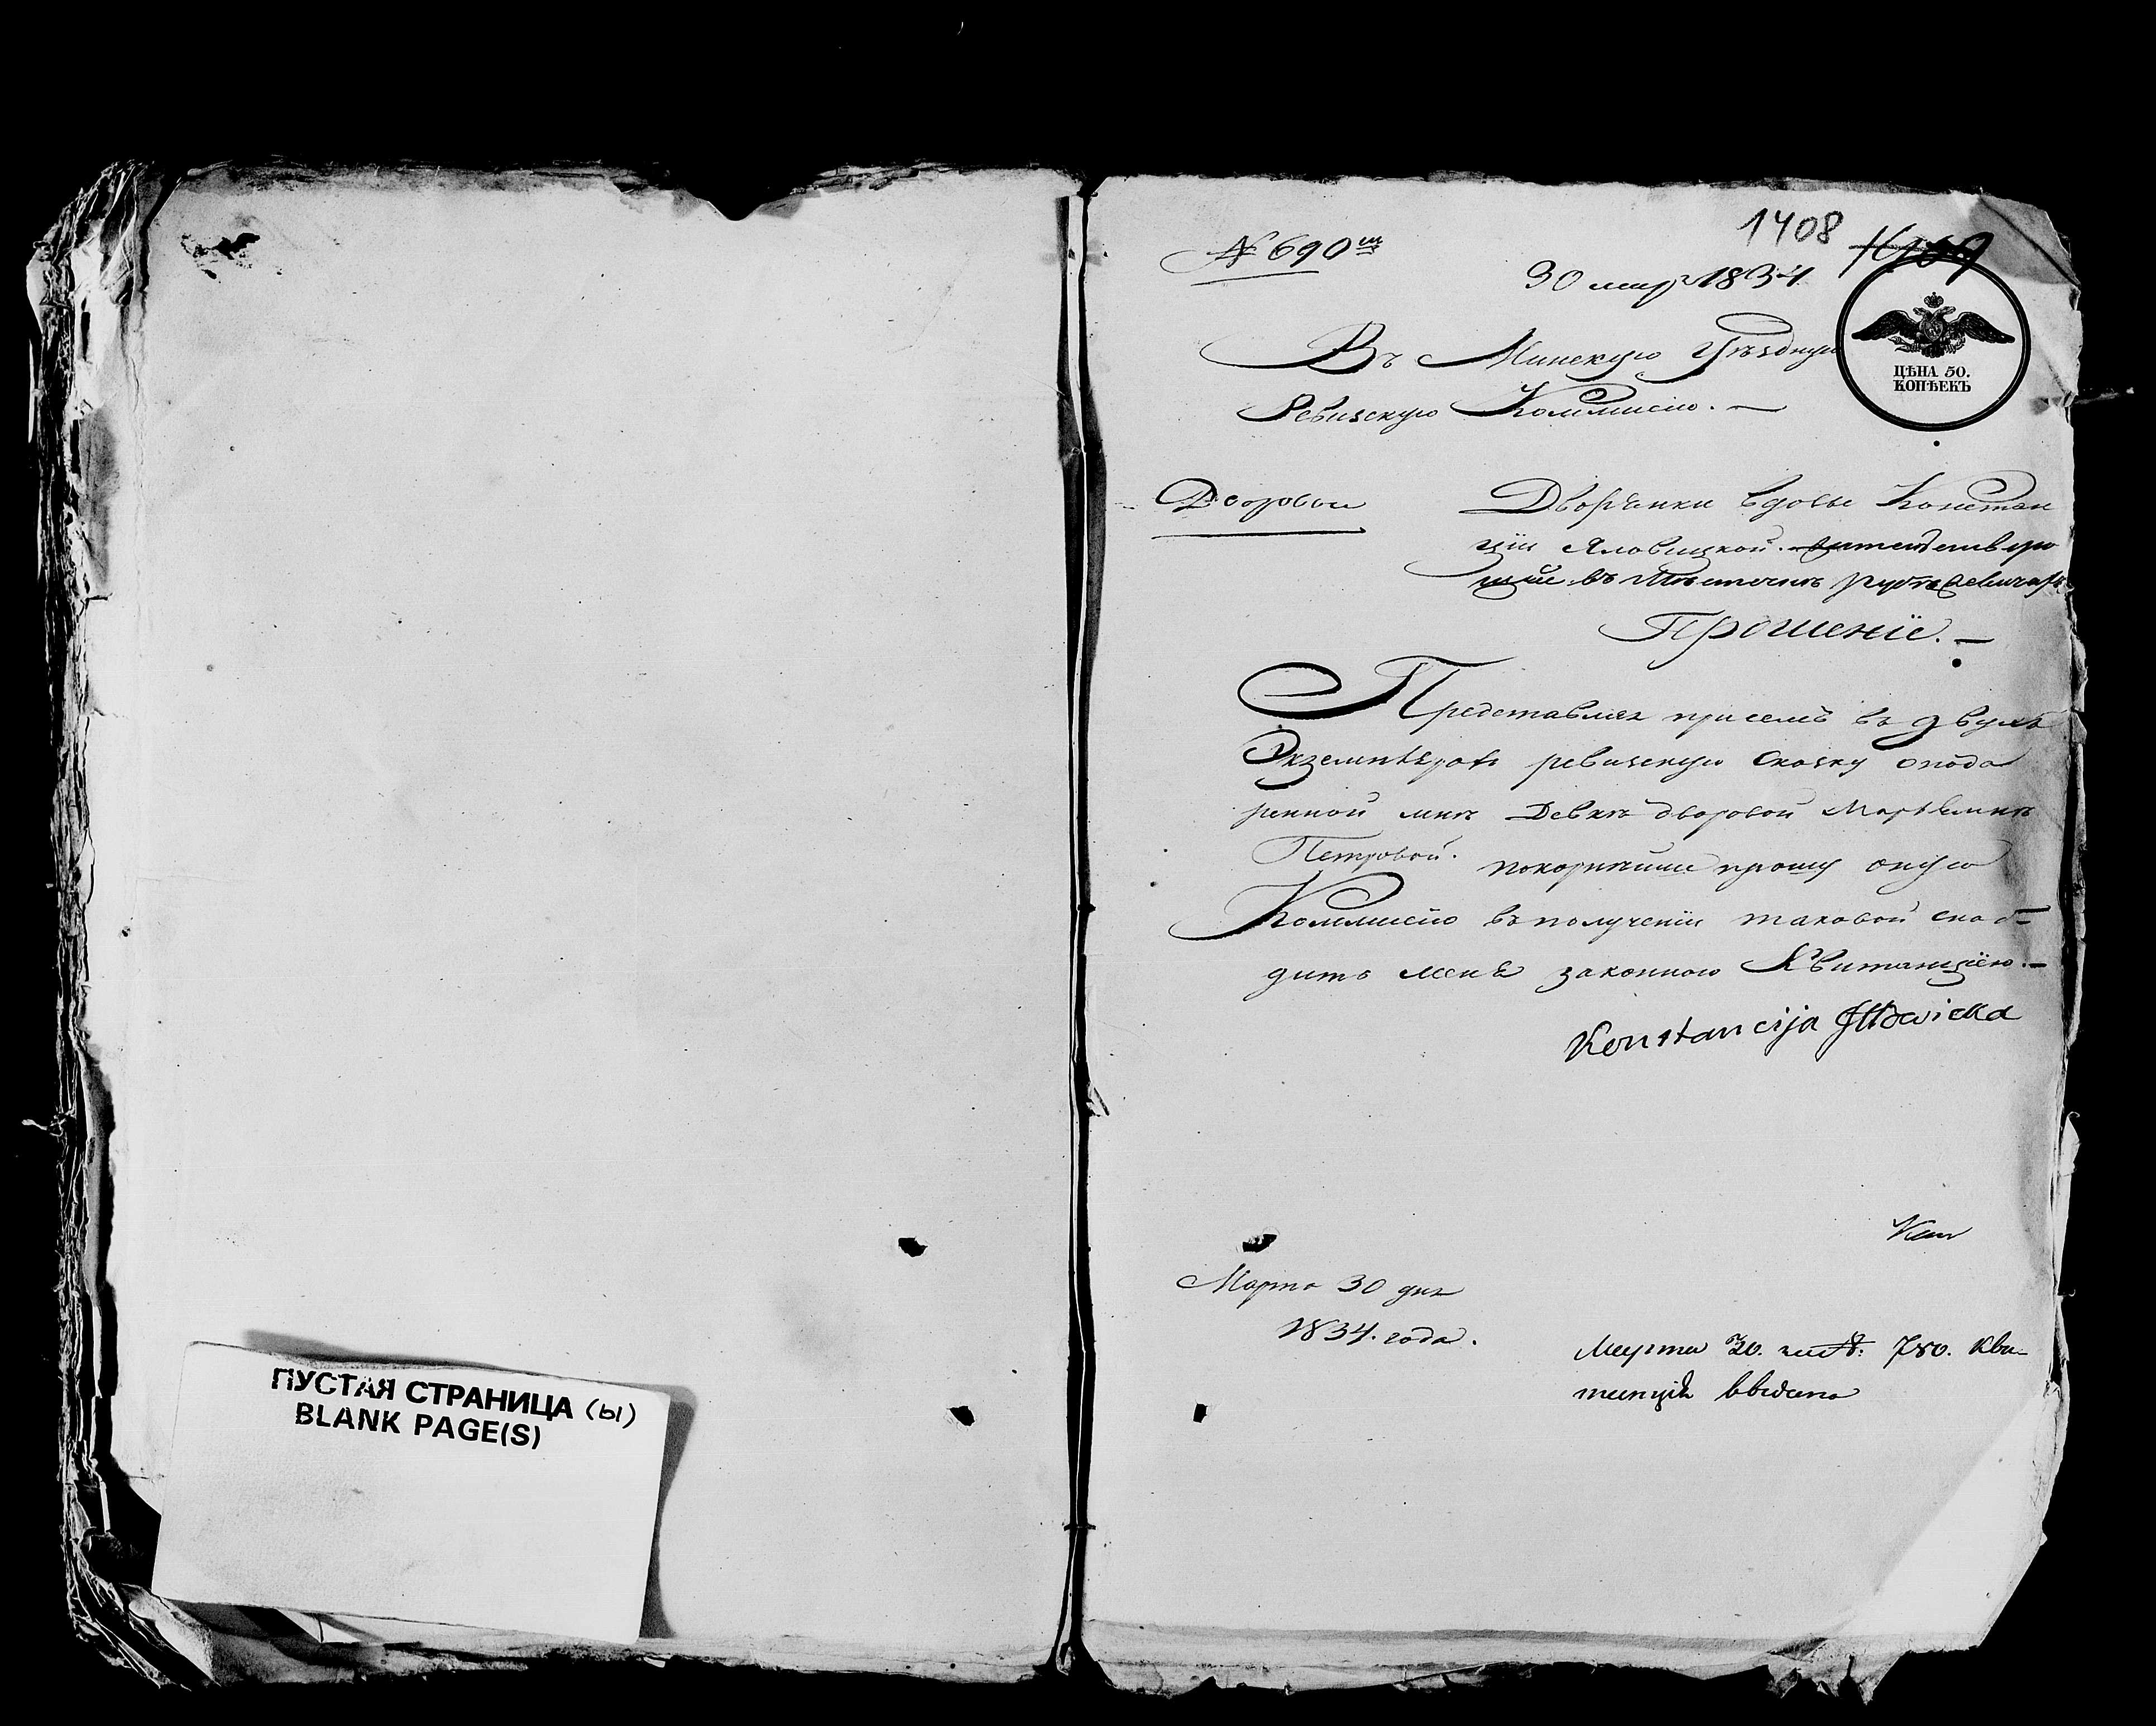 ПУСТАЯ СТРАНИЦА (Ы)
BLANK PAGE(S)
№ 690
1408
30 мар 1834
ЦѢНА 50.
КОПѢЕКЪ
Въ Минскую Уѣздную
Ревизскую Коммисію.
Дворовыя
Дворянки вдовы Констан
ціи Яловицкой.
въ Мѣстечкѣ
Прошеніе.
Представляя при семъ въ двухъ
Экземплярахъ ревизскую Сказку о пода
ренной мнѣ Девкѣ дворовой
Петровой. покорнѣйше прошу оную
Коммисію въ полученіи таковой снаб-
дить меня законною Квитанціею.
Konstancija
Марта 30 дня
1834. года.
Марта 30. 780. Ква-